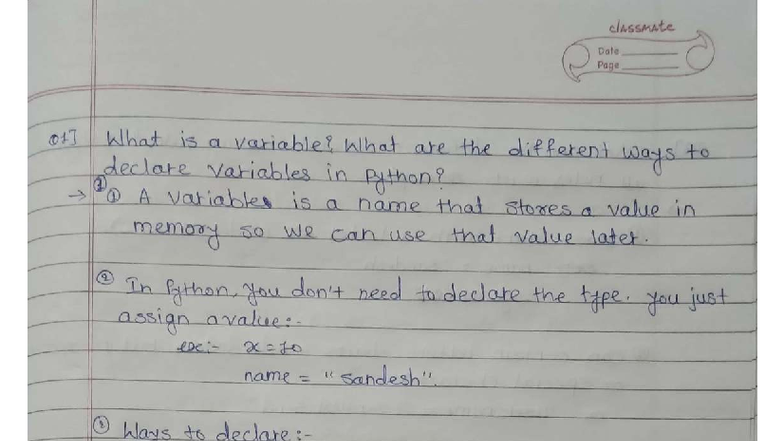 classmate
Date
Page
Q1] What is a variable? What are the different ways to
declare variables in Python?
→ ① A variable is a name that stores a value in
memory so we can use that value later.
② In Python, you don't need to declare the type. You just
assign a value:-
ex:- x = 10
name = "Sandesh".
③ Ways to declare:-